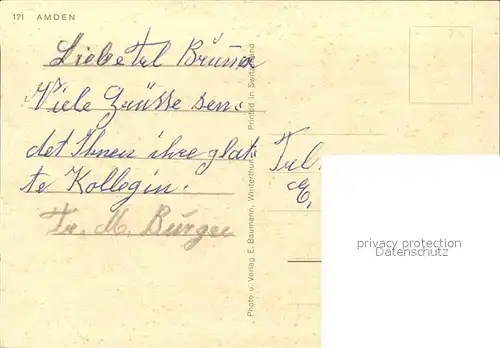 171 AMDEN
Liebe Frl Brunner
Viele Grüsse sen-
det Ihnen ihre glat-
te Kollegin.
Fr. M. Burger
Photo u. Verlag E. Baumann, Winterthur Printed in Switzerland
Frl.
E.
privacy protection
Datenschutz